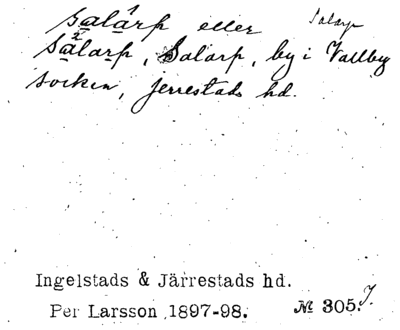 salarp eller Salarp
sälarp, Salarp, by i Vallby
socken, jerrestads hd.
Ingelstads & Järrestads hd.
Per Larsson 1897-98. № 305.